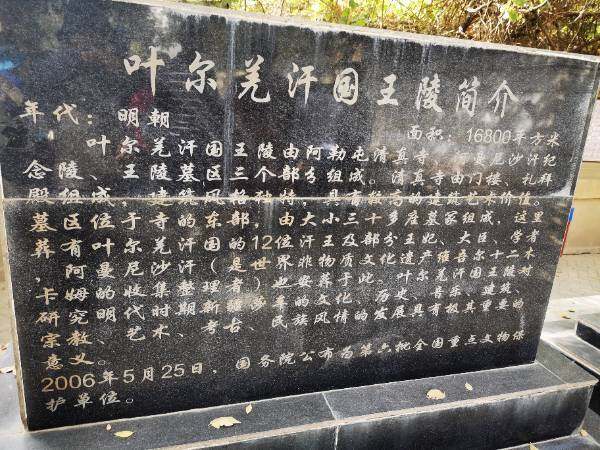 叶尔羌汗国王陵简介
年代：明朝 面积：16800平方米
叶尔羌汗国王陵由阿勒屯清真寺、阿曼尼沙汗纪
念陵、王陵墓区三个部分组成。清真寺由门楼、礼拜
殿组成，建筑风格独特，具有较高的建筑艺术价值。
墓区位于寺的东部，由大小三十多座墓冢组成，这里
葬有叶尔羌汗国的12位汗王及部分王妃、大臣、学者
，阿曼尼沙汗（是世界非物质文化遗产维吾尔十二木
卡姆的收集整理者）迁葬于此。叶尔羌汗国王陵对
研究明代时期新疆多年的文化、历史、音乐、建筑、
宗教、艺术、考古、民族风情的发展具有极其重要的
意义。
2006年5月25日，国务院公布为第六批全国重点文物保
护单位。